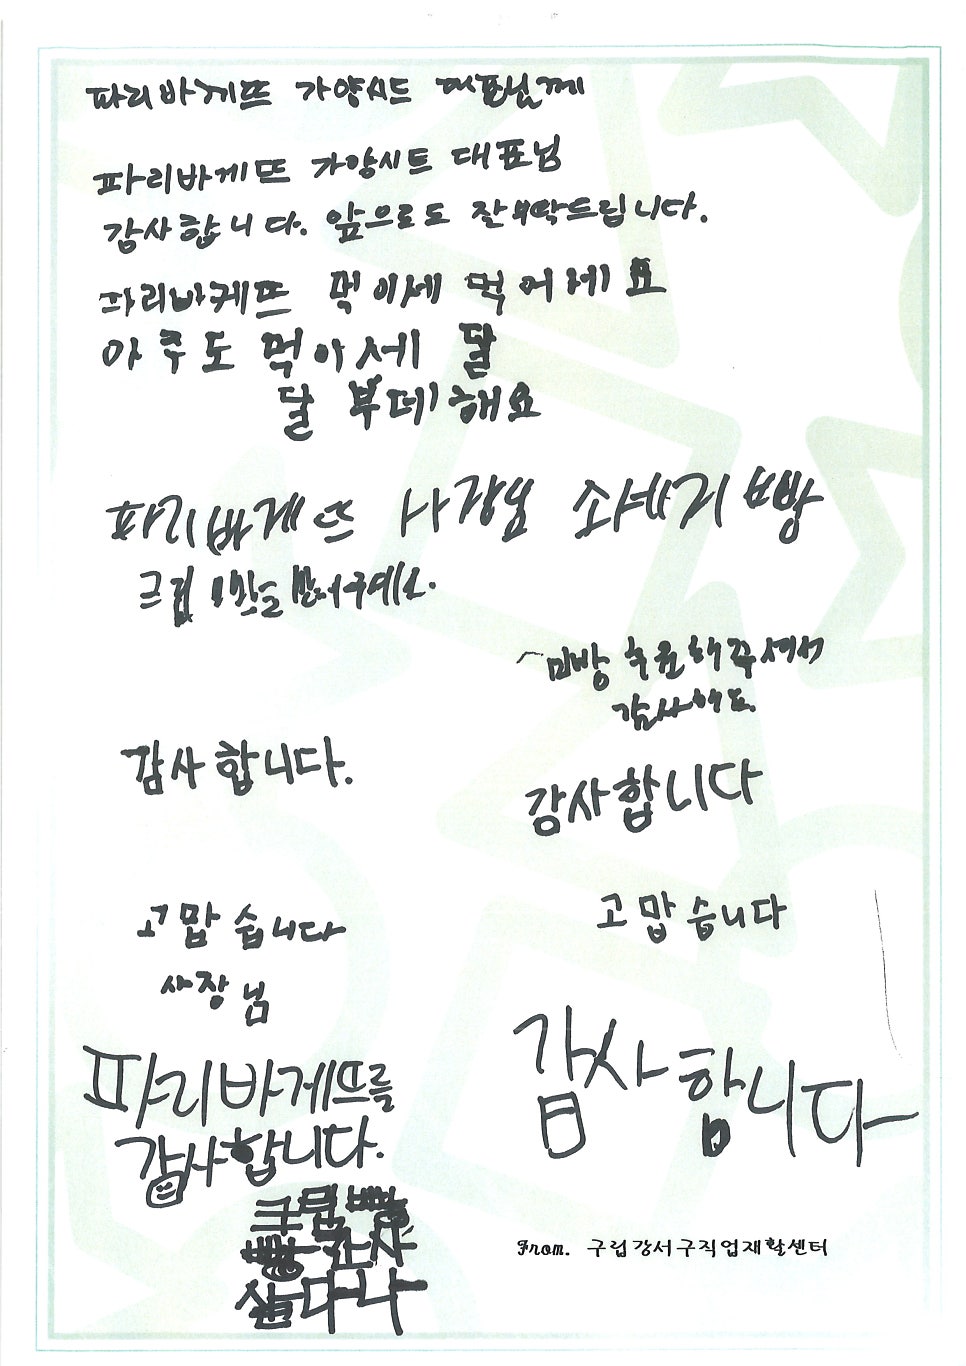 파리바게뜨 가양시드 대표님께
파리바게뜨 가양시트 대표님
감사합니다. 앞으로도 잘 부탁드립니다.
파리바케뜨 먹이세 먹어세요
아주도 먹아세 달
달 부데해요
파리바게뜨 사장님 소세지빵
크림
미방 후원해주셔서
감사해요.
감사합니다.
감사합니다
고맙습니다
고맙습니다
사장님
파리바게뜨를
감사합니다.
감사합니다
크림빵
빵 감사
From. 구립강서구직업재활센터